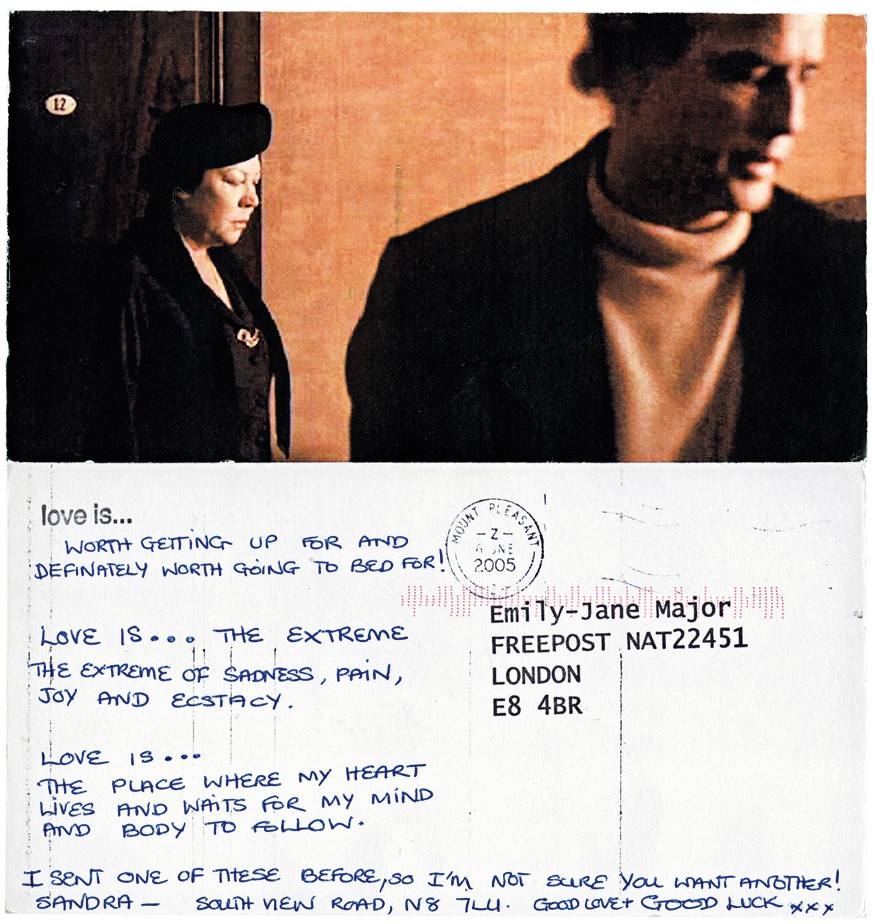 12
love is...
WORTH GETTING UP FOR AND
DEFINATELY WORTH GOING TO BED FOR!
LOVE IS... THE EXTREME
THE EXTREME OF SADNESS, PAIN,
JOY AND ECSTACY.
LOVE IS...
THE PLACE WHERE MY HEART
LIVES AND WAITS FOR MY MIND
AND BODY TO FOLLOW.
I SENT ONE OF THESE BEFORE, SO I'M NOT SURE YOU WANT ANOTHER!
SANDRA - SOUTH VIEW ROAD, N8 7LU. GOOD LOVE + GOOD LUCK xxx
MOUNT PLEASANT
2005
Emily-Jane Major
FREEPOST NAT22451
LONDON
E8 4BR